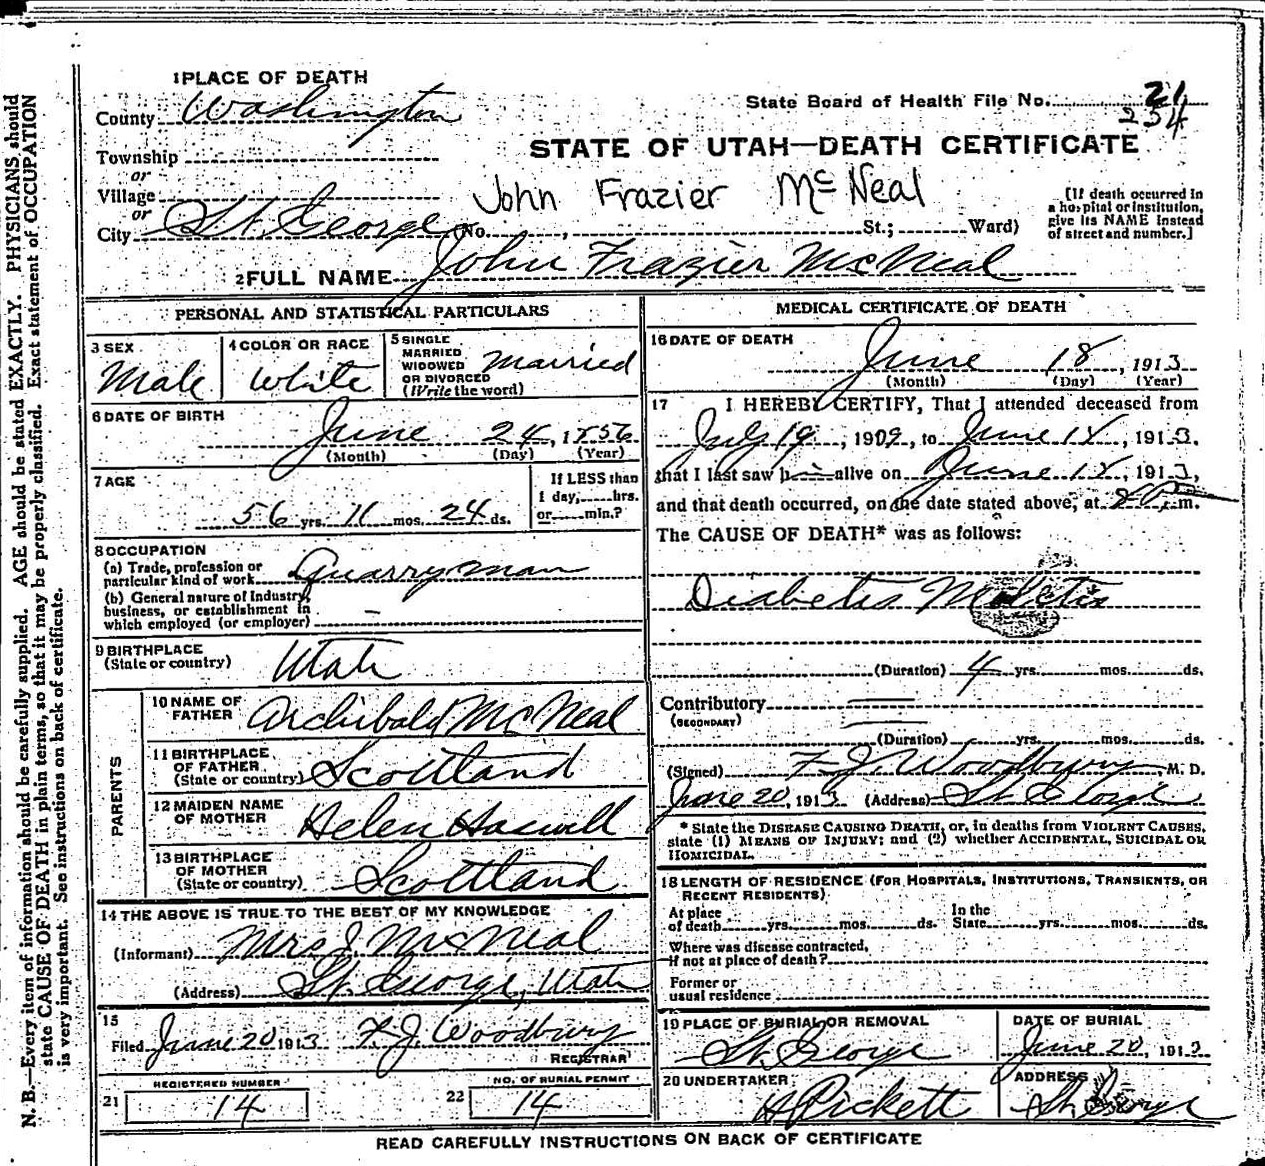 1 PLACE OF DEATH
County Washington
State Board of Health File No. 21
254
Township
or
STATE OF UTAH—DEATH CERTIFICATE
Village
or
John Frazier McNeal
City St. George (No. , St.; Ward)
[If death occurred in
a hospital or institution,
give its NAME instead
of street and number.]
2 FULL NAME John Frazier McNeal
PERSONAL AND STATISTICAL PARTICULARS
3 SEX
Male
4 COLOR OR RACE
White
5 SINGLE
MARRIED
WIDOWED
OR DIVORCED
(Write the word)
Married
6 DATE OF BIRTH
June 24, 1856
(Month) (Day) (Year)
7 AGE
56 yrs. 11 mos. 24 ds.
If LESS than
1 day, hrs.
or min.?
8 OCCUPATION
(a) Trade, profession or
particular kind of work Quarryman
(b) General nature of Industry,
business, or establishment in
which employed (or employer) —
9 BIRTHPLACE
(State or country) Utah
PARENTS
10 NAME OF
FATHER Archibald McNeal
11 BIRTHPLACE
OF FATHER
(State or country) Scottland
12 MAIDEN NAME
OF MOTHER Helen Haswell
13 BIRTHPLACE
OF MOTHER
(State or country) Scottland
14 THE ABOVE IS TRUE TO THE BEST OF MY KNOWLEDGE
(Informant) Mrs J. McNeal
(Address) St. George, Utah
15
Filed June 20 1913 F. J. Woodbury
REGISTRAR
REGISTERED NUMBER
21 14
NO. OF BURIAL PERMIT
22 14
MEDICAL CERTIFICATE OF DEATH
16 DATE OF DEATH
June 18, 1913
(Month) (Day) (Year)
17 I HEREBY CERTIFY, That I attended deceased from
July 19, 1909, to June 18, 1913,
that I last saw him alive on June 18, 1913,
and that death occurred, on the date stated above, at 8 P m.
The CAUSE OF DEATH* was as follows:
Diabetis
(Duration) 4 yrs. mos. ds.
Contributory
(SECONDARY)
(Duration) yrs. mos. ds.
(Signed) F. J. Woodbury, M. D.
June 20, 1913 (Address) St. George
* State the DISEASE CAUSING DEATH, or, in deaths from VIOLENT CAUSES,
state (1) MEANS OF INJURY; and (2) whether ACCIDENTAL, SUICIDAL OR
HOMICIDAL.
18 LENGTH OF RESIDENCE (FOR HOSPITALS, INSTITUTIONS, TRANSIENTS, OR
RECENT RESIDENTS)
At place
of death yrs. mos. ds.
In the
State yrs. mos. ds.
Where was disease contracted,
if not at place of death?
Former or
usual residence
19 PLACE OF BURIAL OR REMOVAL
St. George
DATE OF BURIAL
June 20, 1913
20 UNDERTAKER
Pickett
ADDRESS
St. George
READ CAREFULLY INSTRUCTIONS ON BACK OF CERTIFICATE
N. B.—Every item of information should be carefully supplied. AGE should be stated EXACTLY. PHYSICIANS should
state CAUSE OF DEATH in plain terms, so that it may be properly classified. Exact statement of OCCUPATION
is very important. See instructions on back of certificate.